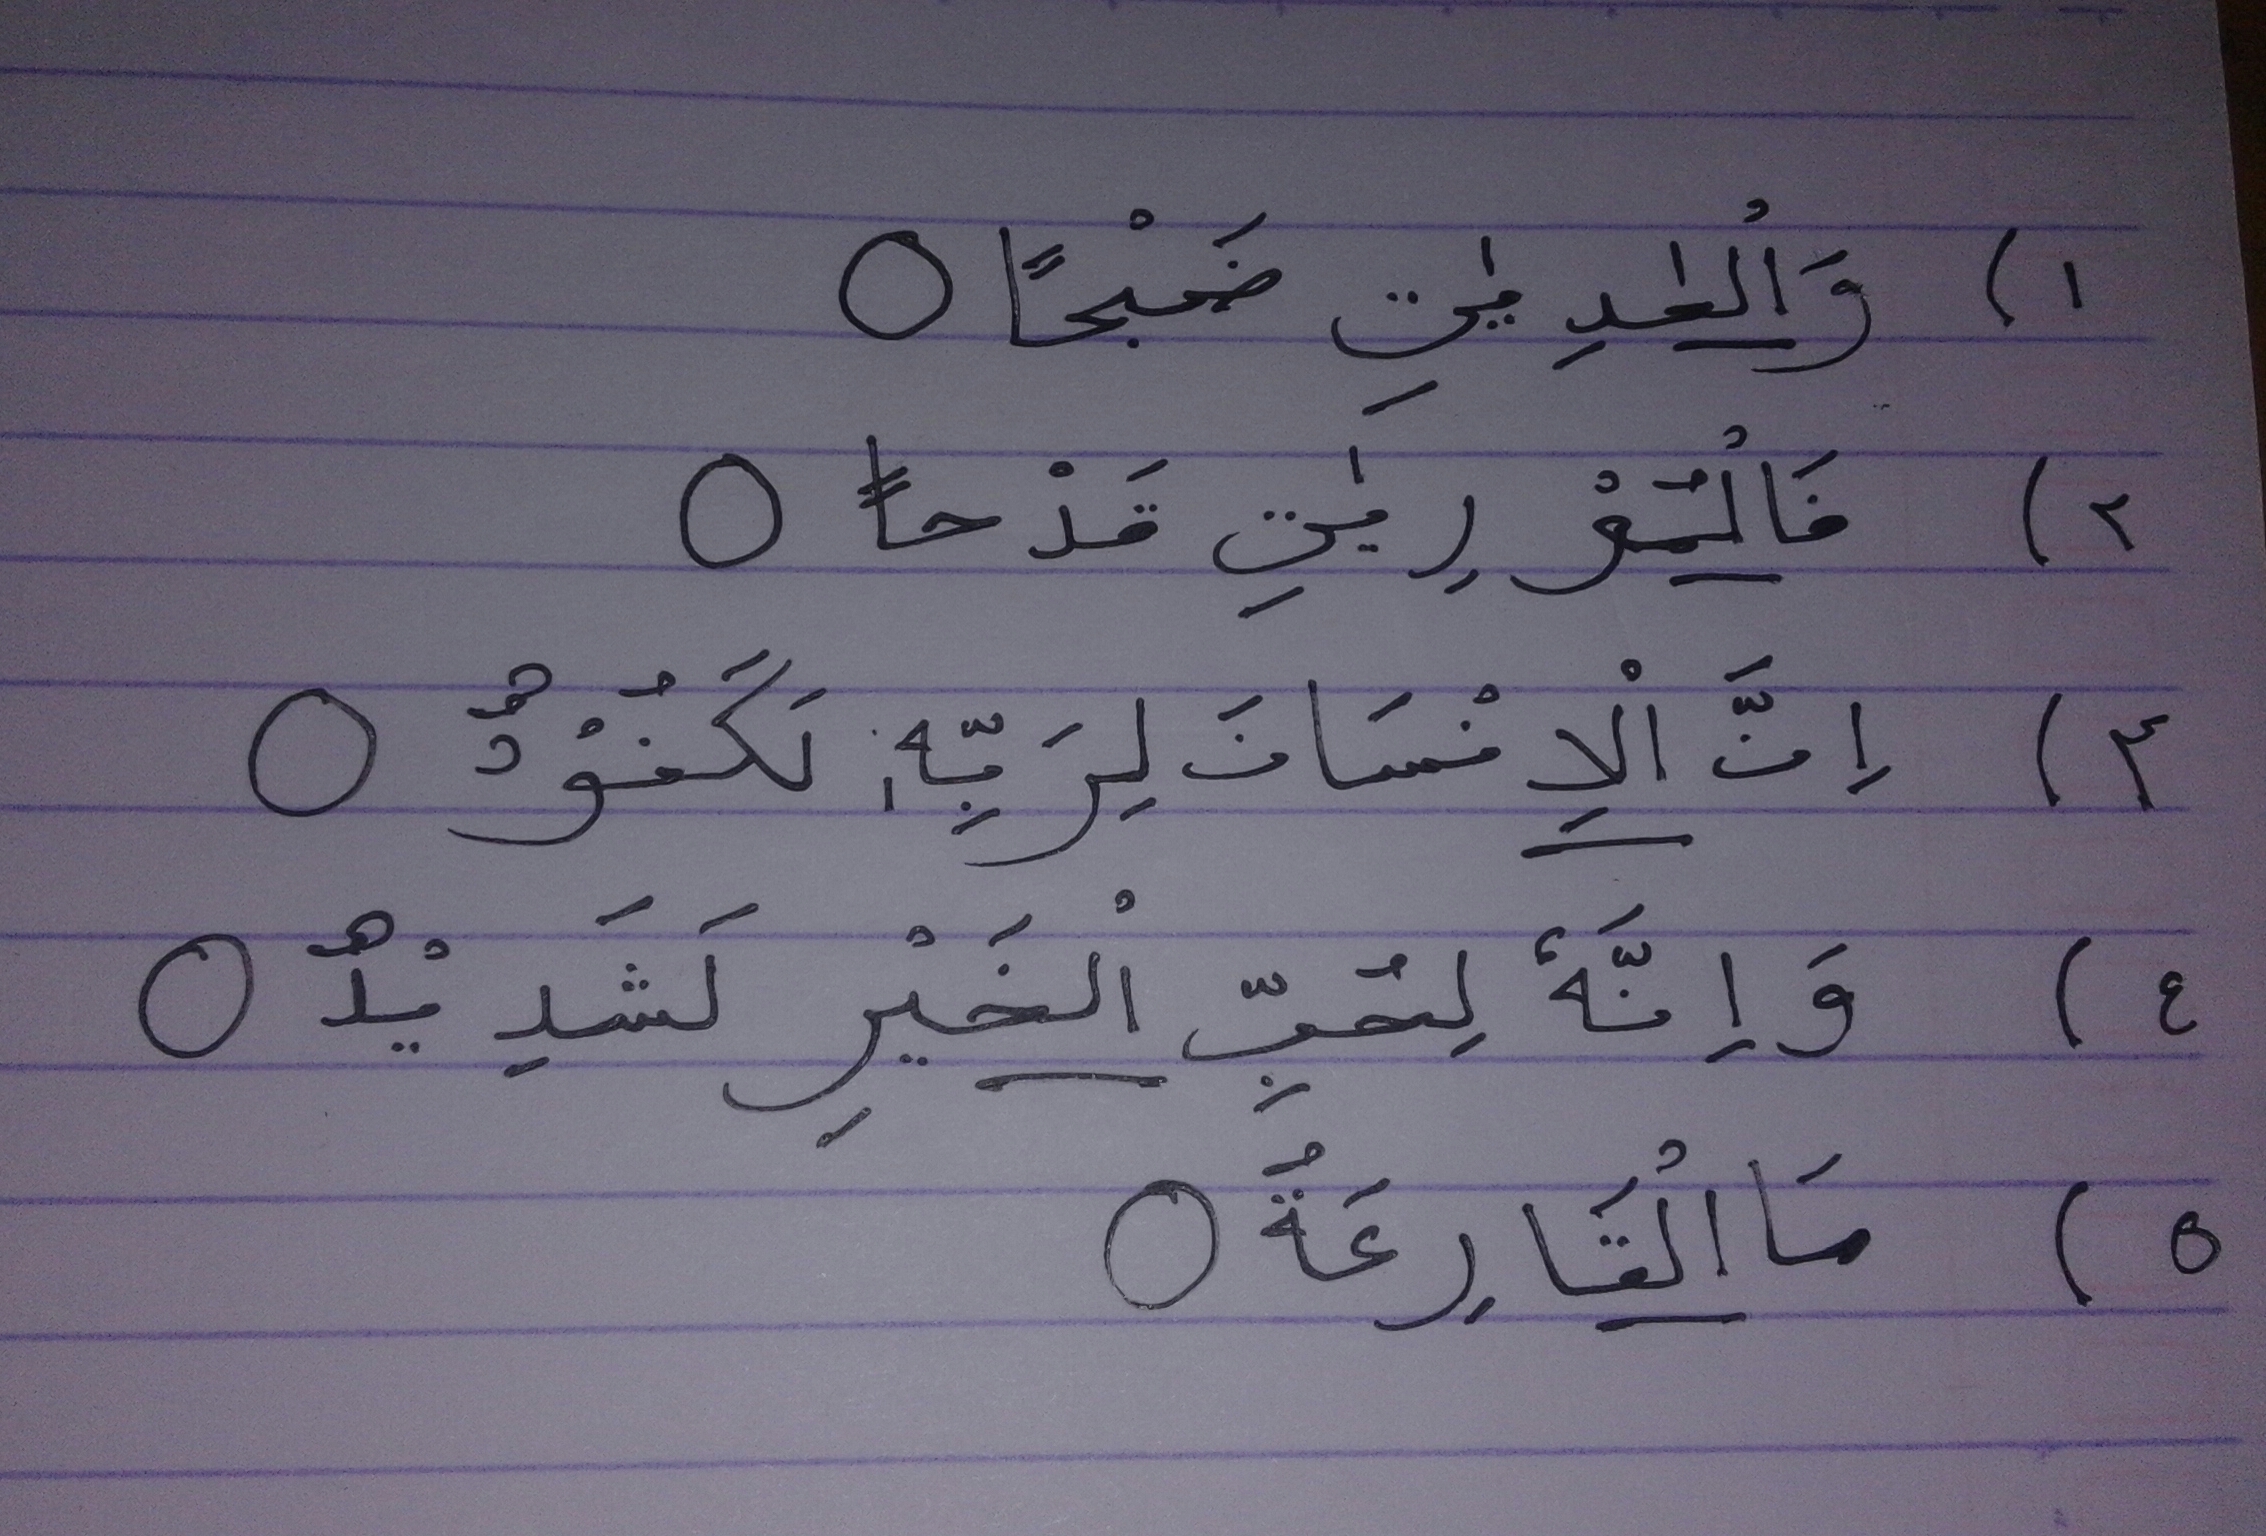 ١) وَالْعٰدِيٰتِ ضَبْحًا ○
٢) فَالْمُوْرِيٰتِ قَدْحًا ○
٣) اِنَّ الْاِنْسَانَ لِرَبِّهٖ لَكَنُوْدٌ ○
٤) وَاِنَّهٗ لِحُبِّ الْخَيْرِ لَشَدِيْدٌ ○
٥) مَاالْقَارِعَةُ ○